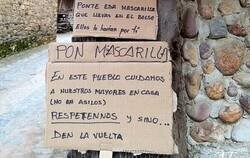 PONTE ESA MASCARILLA
QUE LLEVAS EN EL BOLSO
Ellos lo harían por ti
PON MASCARILLA
EN ESTE PUEBLO CUIDAMOS
A NUESTROS MAYORES EN CASA
(NO EN ASILOS)
RESPETENNOS Y SINO...
DEN LA VUELTA